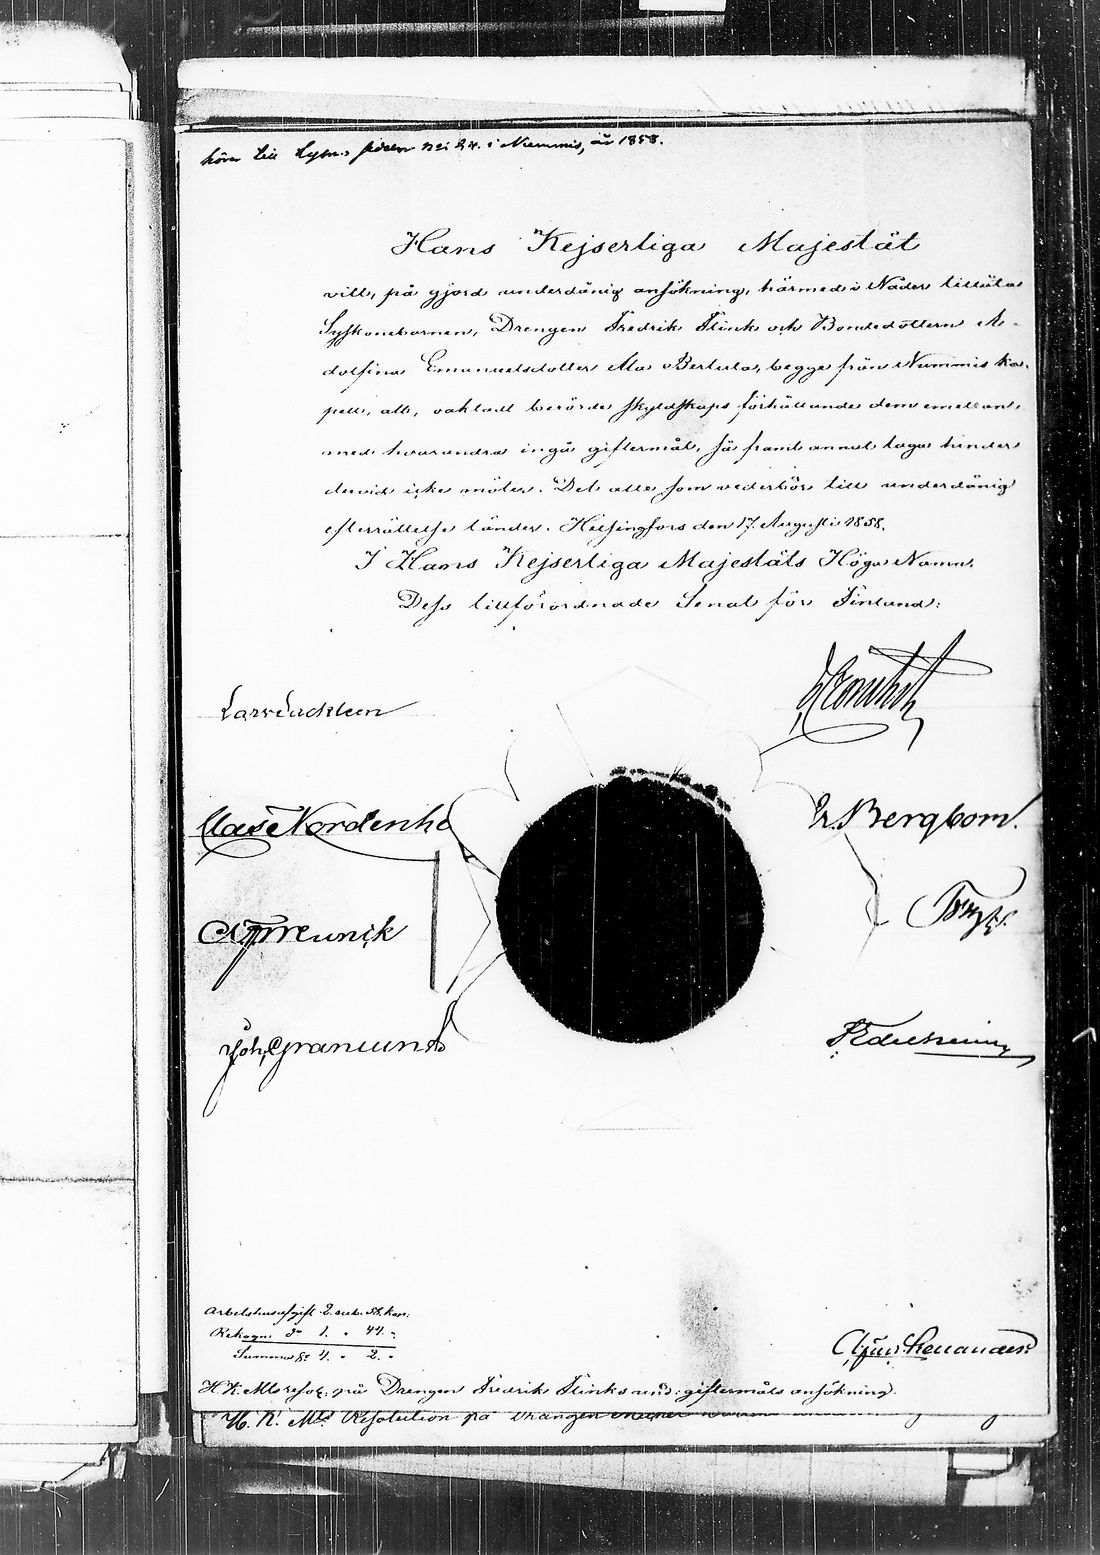 hörer till Lysn. sedeln N:o 24. i Nummis, år 1858.
Hans Kejserliga Majestät
vill, på gjord underdånig ansökning, härmed i Nåder tillåta
Syskonebarnen, Drengen Fredrik Flink och Bondedottern A-
dolfina Emanuelsdotter Ala Bertula, begge från Nummis ka-
pell, att, oaktadt berörde skyldskaps förhållande dem emellan,
med hvarandra ingå giftermål, så framt annat laga hinder
dervid icke möter. Det alla som vederbör till underdånig
efterrättelse länder. Helsingfors den 17. Augusti 1858.
I Hans Kejserliga Majestäts Höga Namn,
Dess tillförordnade Senat för Finland:
Lars Sackleen
Clas Nordenhe
Er. Bergbom.
Joh. Granlund
Arbetshusafgift 2. rub. 58. kop:
Rekogn. d:o 1. " 44. "
Summa S:r 4. " 2. "
H. K. M:ts resol: på Drengen Fredrik Flinks m. fl: giftermåls ansökning.
H. K. M:ts Resolution på Drängen